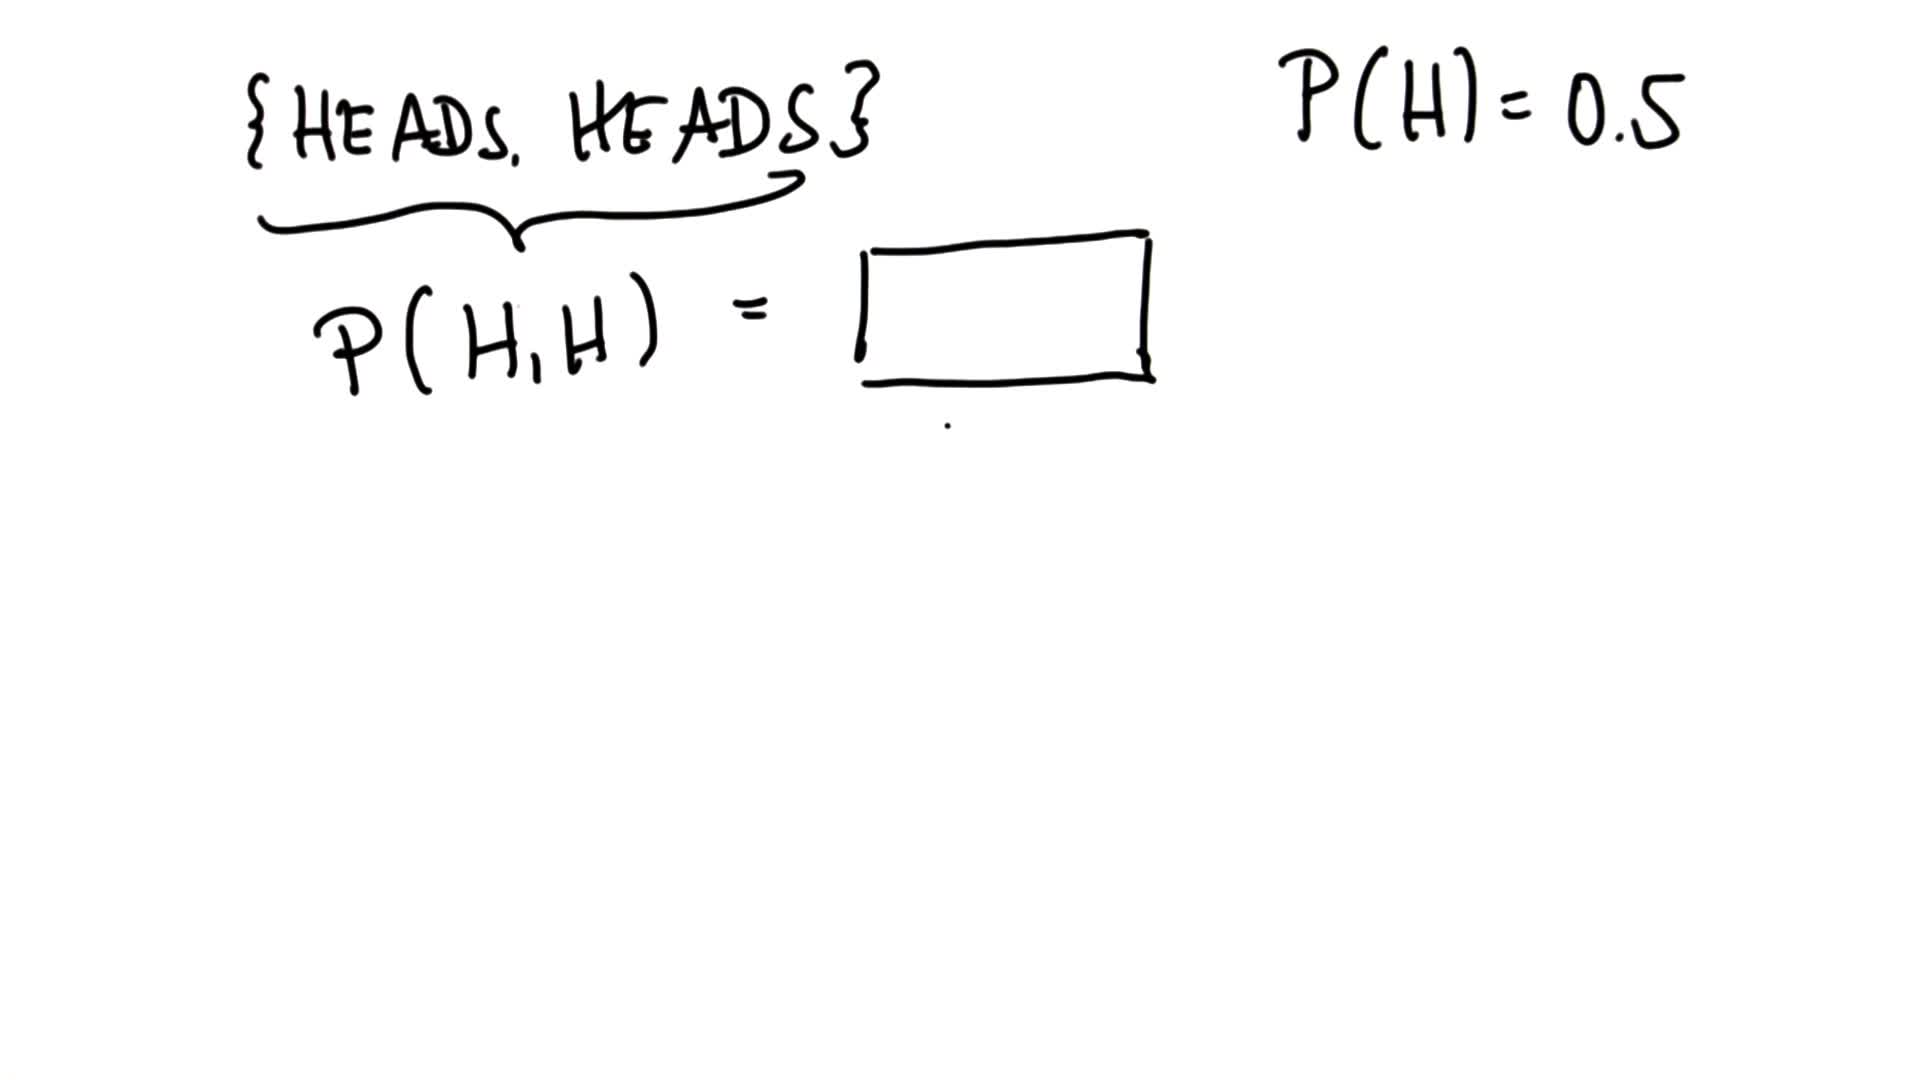 {HEADS, HEADS}
P(H) = 0.5
P(H,H) =